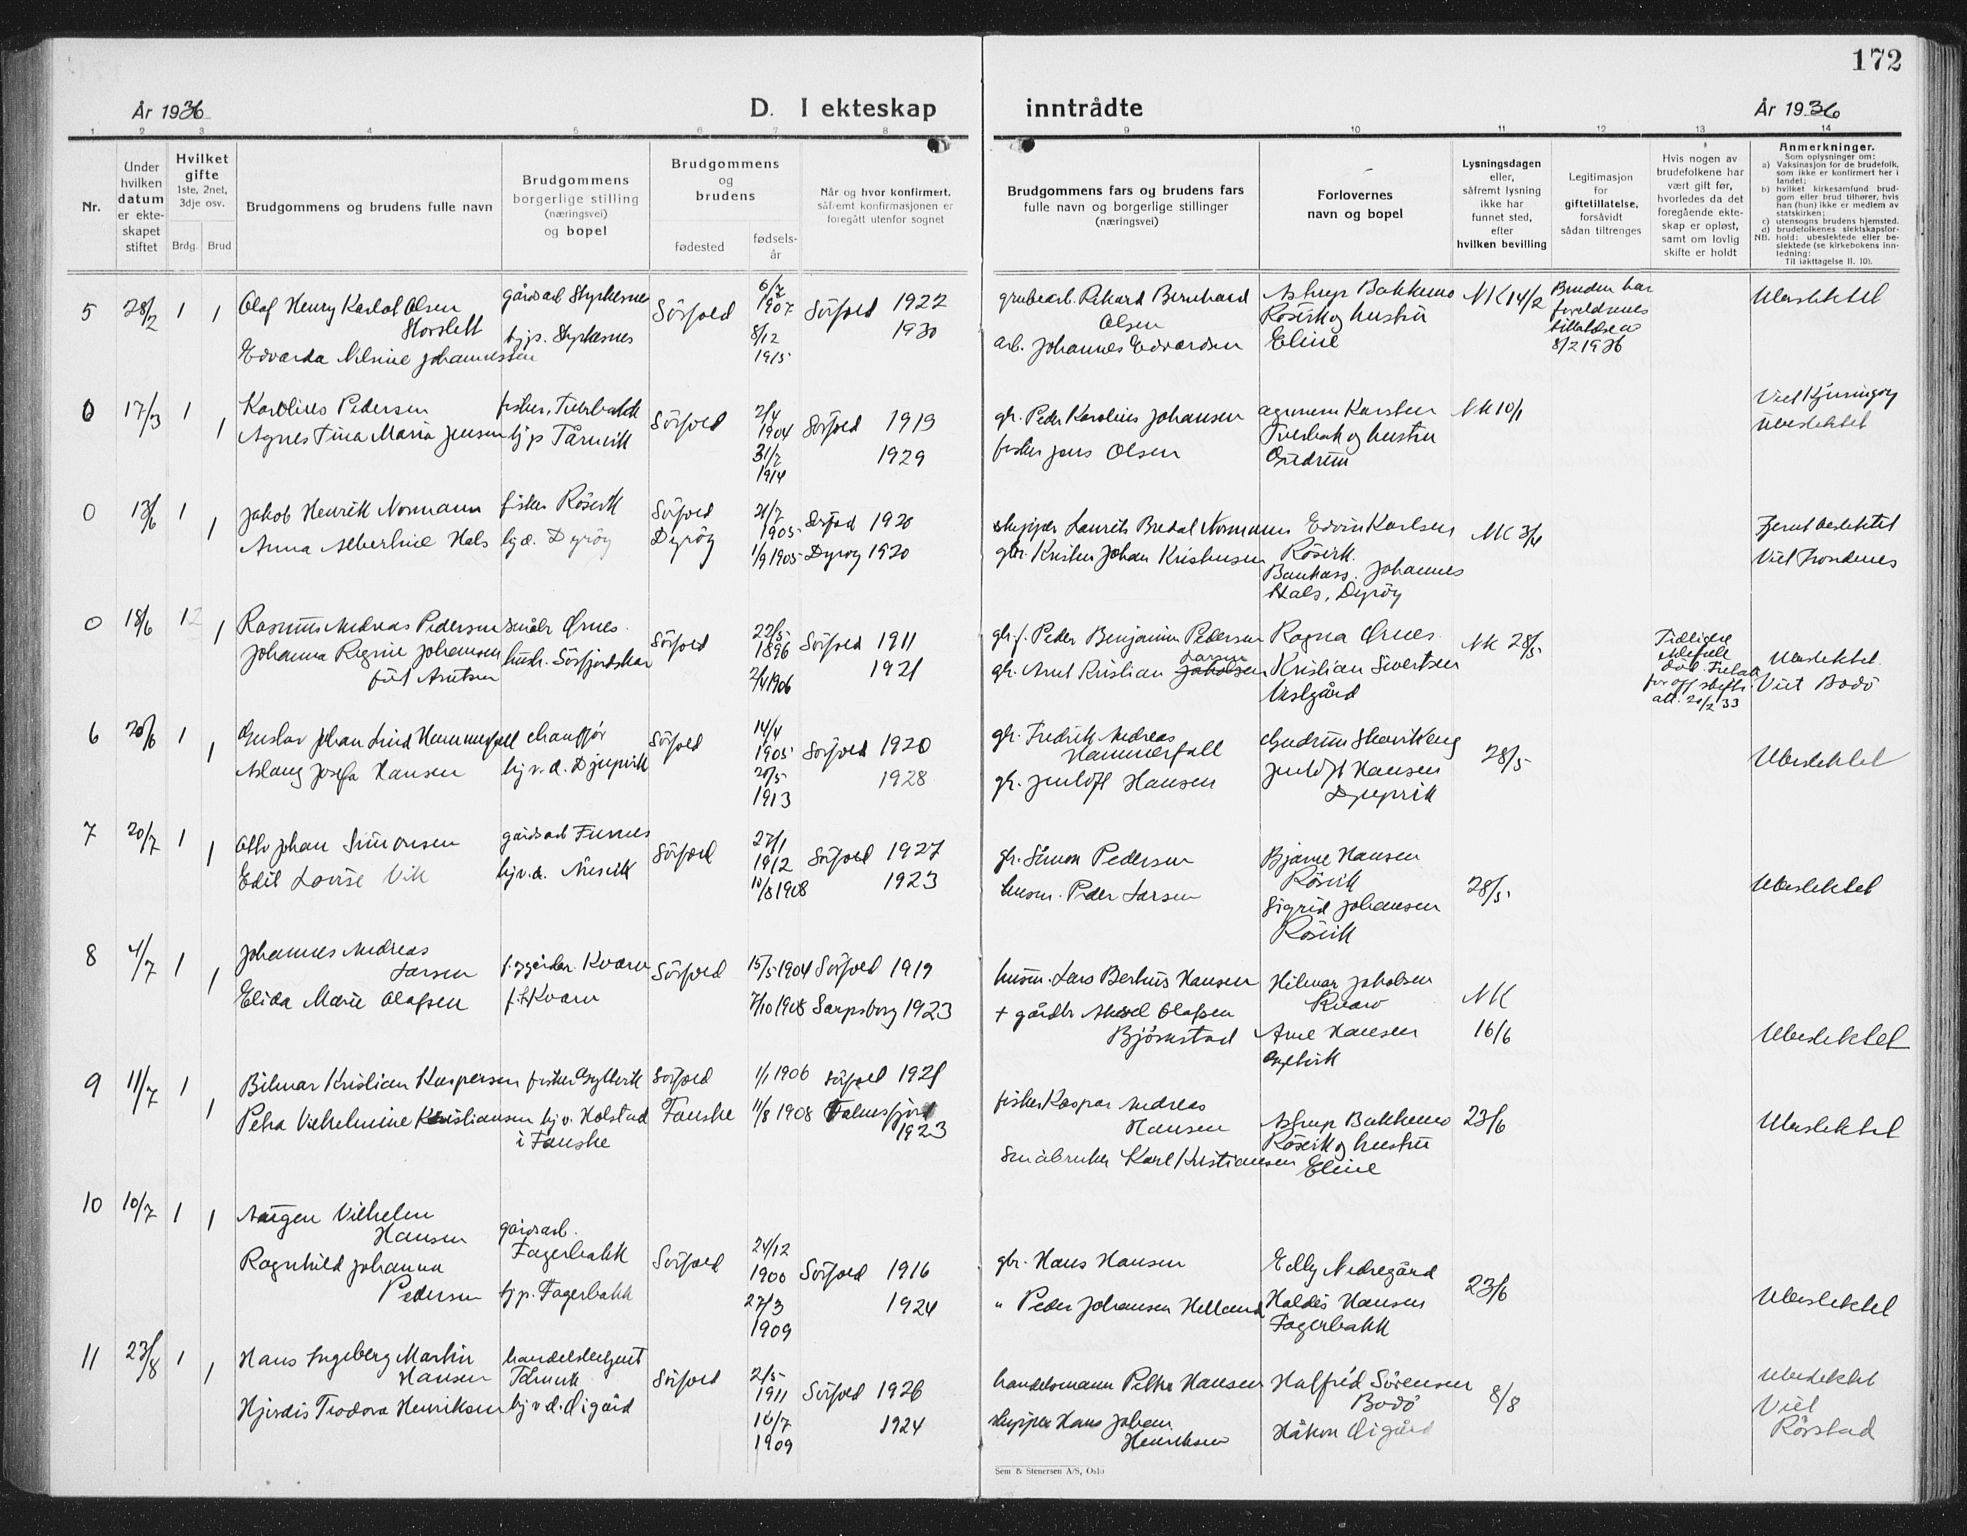 172
År 1936
D. I ekteskap inntrådte
År 1936
1 2 3 4 5 6 7 8 9 10 11 12 13 14
Nr.
Under
hvilken
datum
er ekte-
skapet
stiftet
Hvilket
gifte
1ste, 2net,
3dje osv.
Brdg. Brud
Brudgommens og brudens fulle navn
Brudgommens
borgerlige stilling
(næringsvei)
og bopel
Brudgommens
og
brudens
fødested
fødsels-
år
Når og hvor konfirmert,
såfremt konfirmasjonen er
foregått utenfor sognet
Brudgommens fars og brudens fars
fulle navn og borgerlige stillinger
(næringsvei)
Forlovernes
navn og bopel
Lysningsdagen
eller,
såfremt lysning
ikke har
funnet sted,
efter
hvilken bevilling
Legitimasjon
for
giftetillatelse,
forsåvidt
sådan tiltrenges
Hvis nogen av
brudefolkene har
vært gift før,
hvorledes da det
foregående ekte-
skap er opløst,
samt om lovlig
skifte er holdt
Anmerkninger.
Som oplysninger om:
a) Vaksinasjon for de brudefolk,
som ikke er konfirmert her i
landet;
b) hvilket kirkesamfund brud-
gom eller brud tilhører, hvis
han (hun) ikke er medlem av
statskirken;
c) utensogns brudens hjemsted.
d) brudefolkenes slektskapsfor-
NB. hold: ubeslektede eller be-
slektede (se kirkebokens inn-
ledning:
Til iakttagelse II. 10).
5 28/2 1 1
Olaf Henry Karlot Olsen
Horslett
Edvarda Nilsine Johannessen
gårdsarb Styrkesnes
hjp. Styrkesnes
Sörfold
6/7
1907
8/12
1915
Sörfold 1922
1930
grubearb. Rikard Bernhard
Olsen
arb. Johannes Edvardsen
Astrup Bakkemo
Rösvik og hustru
Eline
NK 14/2
Bruden har
foreldrenes
tillatelse av
8/2 1936
Ubeslektet
0 17/3 1 1
Karolius Pedersen
Agnes Tina Maria Jensen
fisker, Tverbakk
hjp Tårnvik
Sörfold
2/4
1904
31/7
1914
Sörfold 1919
1929
gbr. Peder Karolius Johansen
fisker Jens Olsen
agronom Karsten
Tverbak og hustru
Gudrun
NK 10/1
Viet Kjerringöy
Ubeslektet
0 13/6 1 1
Jakob Henrik Normann
Anna Albertine Hals
fisker Rösvik
hj.d. Dyröy
Sörfold
Dyröy
21/7
1905
1/9 1905
Sörfold 1920
Dyröy 1920
skipper Laurits Bredal Normann
gbr. Kristen Johan Kristensen
Edvin Karlsen
Rösvik.
Bankass. Johannes
Hals, Dyröy
NK 3/4
Fjernt beslektet
Viet Trondenes
0 18/6 1 2 1
Rasmus Andreas Pedersen
Johanna Regine Johansen
föd Arntsen
småbr Ørnes.
hush. Sörfjordskar
Sörfold
22/5
1896
2/4 1906
Sörfold 1911
1921
gbr. f. Peder Benjamin Pedersen
Larsen
gbr. Arnt Kristian Jakobsen
Ragna Ørnes.
Kristian Sivertsen
Vestgård
NK 28/5
att. 20/2 33
Ubeslektet.
Viet Bodö
6 20/6 1 1
Gustav Johan Lind Hammerfall
Aslaug Josefa Hansen
chauffør
hj v. d. Djupvik
Sörfold
14/4
1905
20/5
1913
Sörfold 1920
1928
gbr. Fredrik Andreas
Hammerfall
gbr. Jentoft Hansen
Gudrun Skarikeng
Jentoft Hansen
Djupvik
28/5
Ubeslektet
7 20/7 1 1
Otto Johan Simonsen
Edit Lovise Vik
gårdsarb Furnes
hj v. d. Nesvik
Sörfold
27/1
1912
10/8 1908
Sörfold 1927
1923
gbr. Simon Pedersen
husm. Peder Larsen
Bjarne Hansen
Rösvik
Sigrid Johansen
Rösvik
28/5
Ubeslektet
8 4/7 1 1
Johannes Andreas
Larsen
Elida Marie Olafsen
Kvarv
Kvarv
Sörfold
15/5 1904
7/10 1908
Sörfold 1919
Sarpsborg 1923
husm. Lars Berhus Hansen
+ gårdbr Aksel Olafsen
Bjørnstad
Hilmar Jakobsen
Kvarv
Arne Hansen
Gyltvik
NK
16/6
Ubeslektet
9 11/7 1 1
Bilmar Kristian Kaspersen
Petra Vilhelmine Kristiansen
fisker Gyltvik
hj v. Holstad
i Fauske
Sörfold
Fauske
1/1 1906
11/8 1908
Sörfold 1921
Valnesfjord
1923
fisker Kaspar Andreas
Hansen
Småbruker Karl Kristiansen
Astrup Bakkemo
Rösvik og hustru
Eline
23/6
Ubeslektet
10 10/7 1 1
Aagen Vilhelm
Hansen
Ragnhild Johanna
Pedersen
gårdsarb.
Fagerbakk
hjp. Fagerbakk
Sörfold
24/12
1900
27/3
1909
Sörfold 1916
1924
gbr. Hans Hansen
" Peder Johansen Helland
Edly Nedregård
Haldis Hansen
Fagerbakk
23/6
Ubeslektet
11 23/8 1 1
Hans Ingeberg Martin
Hansen
Hjördis Teodora Henriksen
handelsbetjent
Tårnvik
hj v d. Öigård
Sörfold
2/5
1911
16/7
1909
Sörfold 1926
1924
handelsmann Petter Hansen
skipper Hans Johan
Henriksen
Halfrid Sörensen
Bodö
Håkon Öigård
8/8
Ubeslektet
Viet
Rörstad
Sem & Stenersen A/S, Oslo